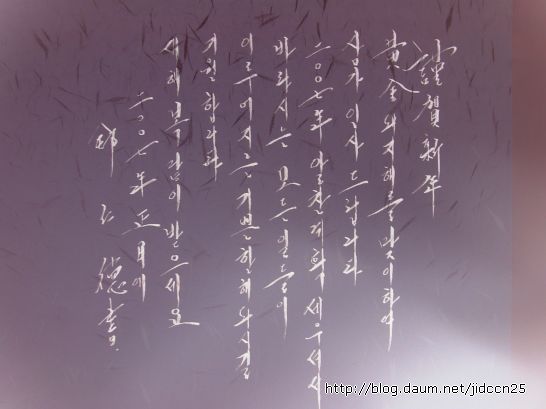 謹賀新年
黄金돼지해를 맞이하여
삼가 인사드립니다
二〇〇七年 알찬계획 세우셔서
바라시는 모든일들이
이루어지는 기쁜한해 되시길
기원합니다
새해 복많이 받으세요
二〇〇七年 正月에
德書
http://blog.daum.net/jidccn25